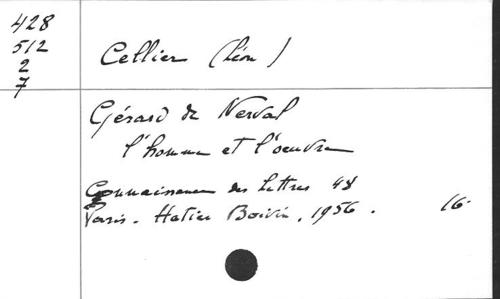 428
512
2
7
Cellier (Léon)
Gérard de Nerval
l'homme et l'oeuvre
Connaissance des Lettres 48
Paris. Hatier Boivin, 1956. 16